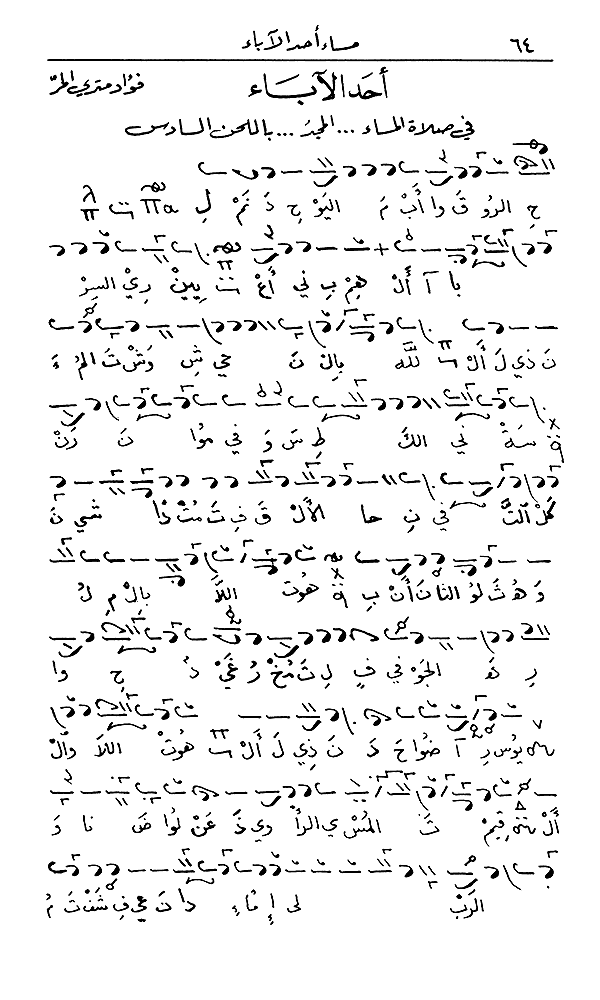 ٦٤ مساء أحد الآباء
أحَد الآبَاء فؤاد متري المرّ
في صلاة المساء ... المجدَ ... باللحن السادس
حِ الروُ قَ وا أَبْ مَ اليَوْ حِ دَ نَمْ لِ
با آ أَلْ هِمْ بِ ني أَعْ يِينْ رِيْ السِرْ
نَ ذي لَ أَلْ للَّه بِالْ نَ عي شِ وَشْ تَ المُ ءَ
سَةْ ني الكَ طِ سَ وَ في مُوا نَ رَنْ
كُلْ التَّ في نِ حا الأَلْ قَ فِ تَ مُتْ دًا شي نَ
وَ هُ ثَ لُو الثا نَ أَنْ بِ هُوت اللاَّ بالْ مِ لُ
رِ هَ الجَوْ في فِ لِ تَ مُخْ رُ غَيْ دُ حِ وا
يُوسْ رِ آ ضُوا حَ دَ نَ ذي لَ أَلْ هُوتْ اللاَ وَألْ
أَلْ قِيمْ تَ المُسْ ي الرأْ وي ذَ عَنْ لُوا ضَ نا دَ
الرَبْ لى إِ مْاءِ دا نَ عي فِ شَفْ تَ مُ